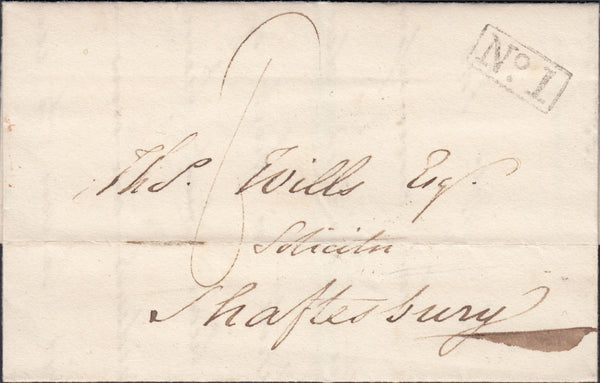 No. 1
Thos. Wills Esqr.
Solicitor
Shaftesbury